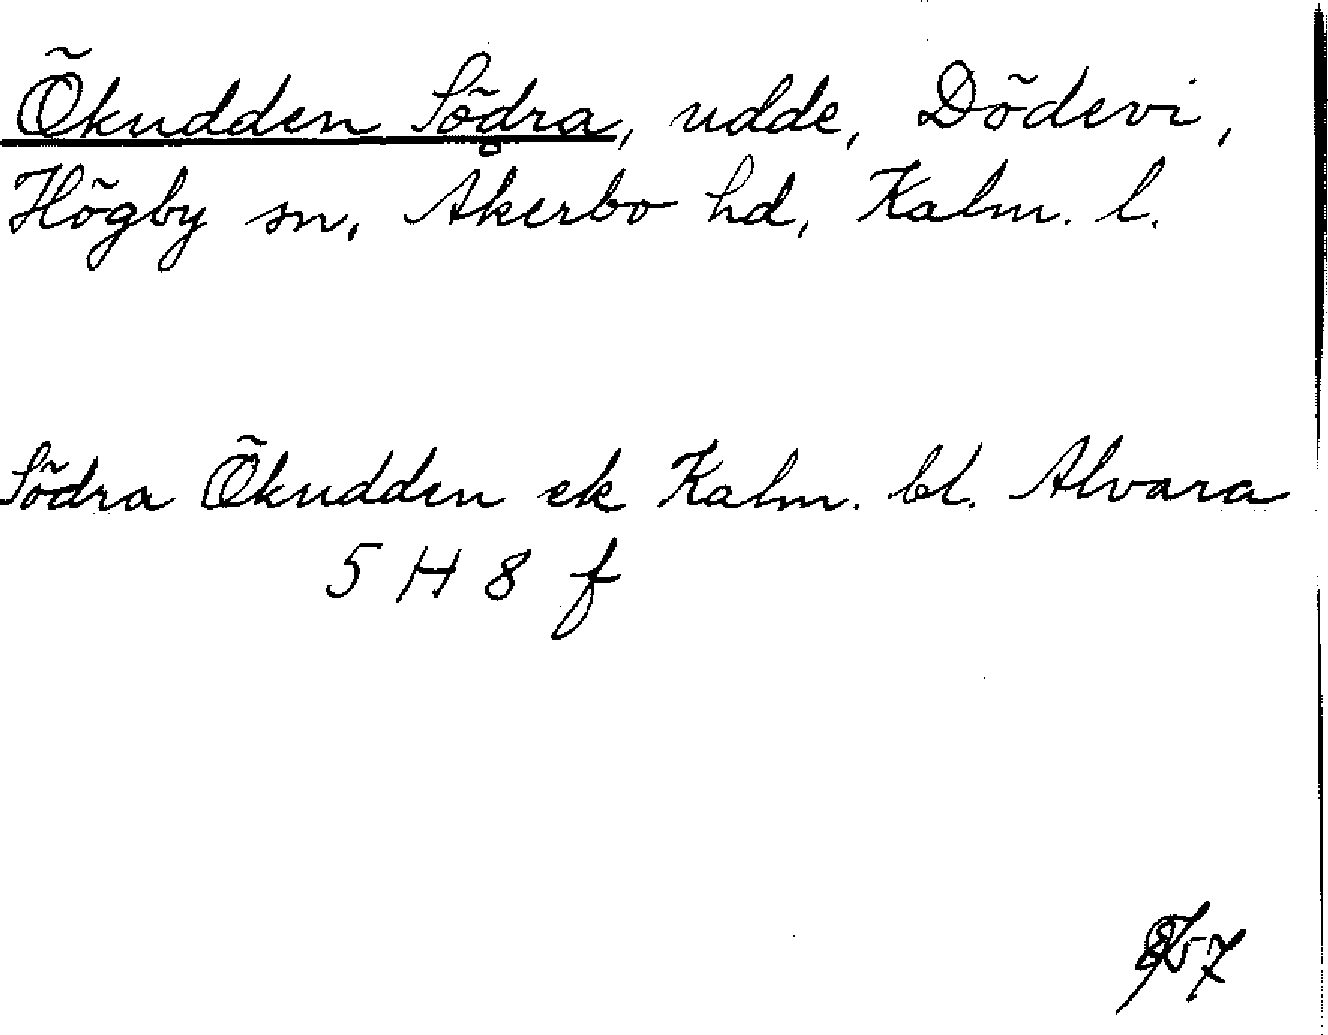 Ökudden Södra, udde, Dödevi,
Högby sn, Åkerbo hd, Kalm. l.
Södra Ökudden ek Kalm. bl. Alvara
5 H 8 f